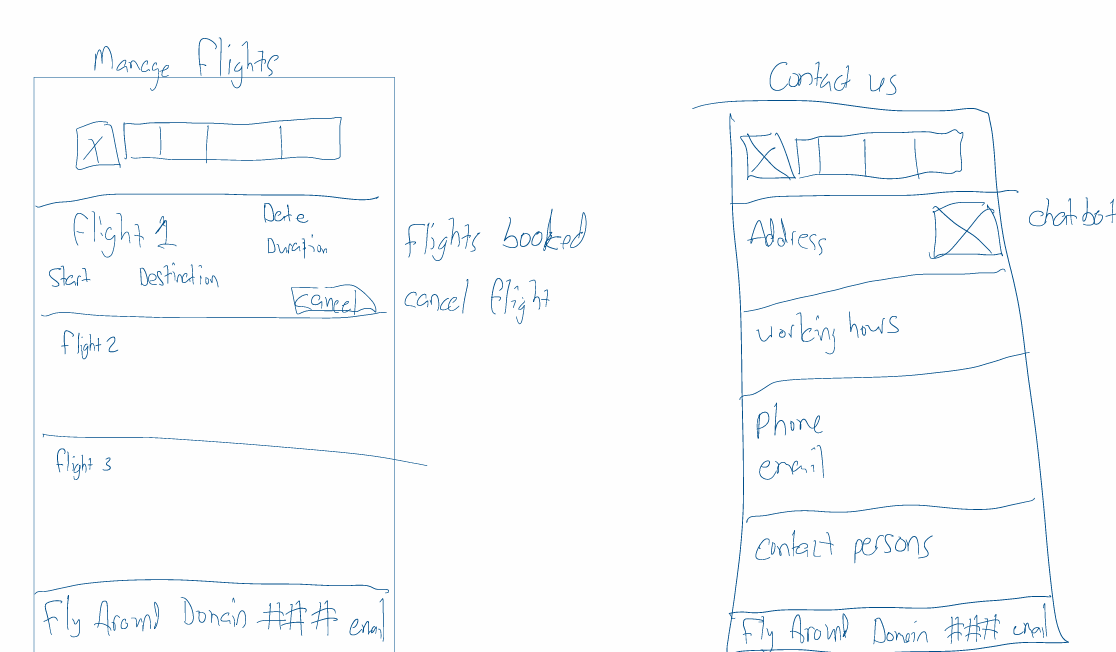 Manage flights
flight 1
Date
Duration
Start Destination
cancel
flights booked
cancel flight
flight 2
flight 3
Fly Around Domain ### email
Contact us
Address
chatbot
working hours
Phone
email
contact persons
Fly Around Domain ### email